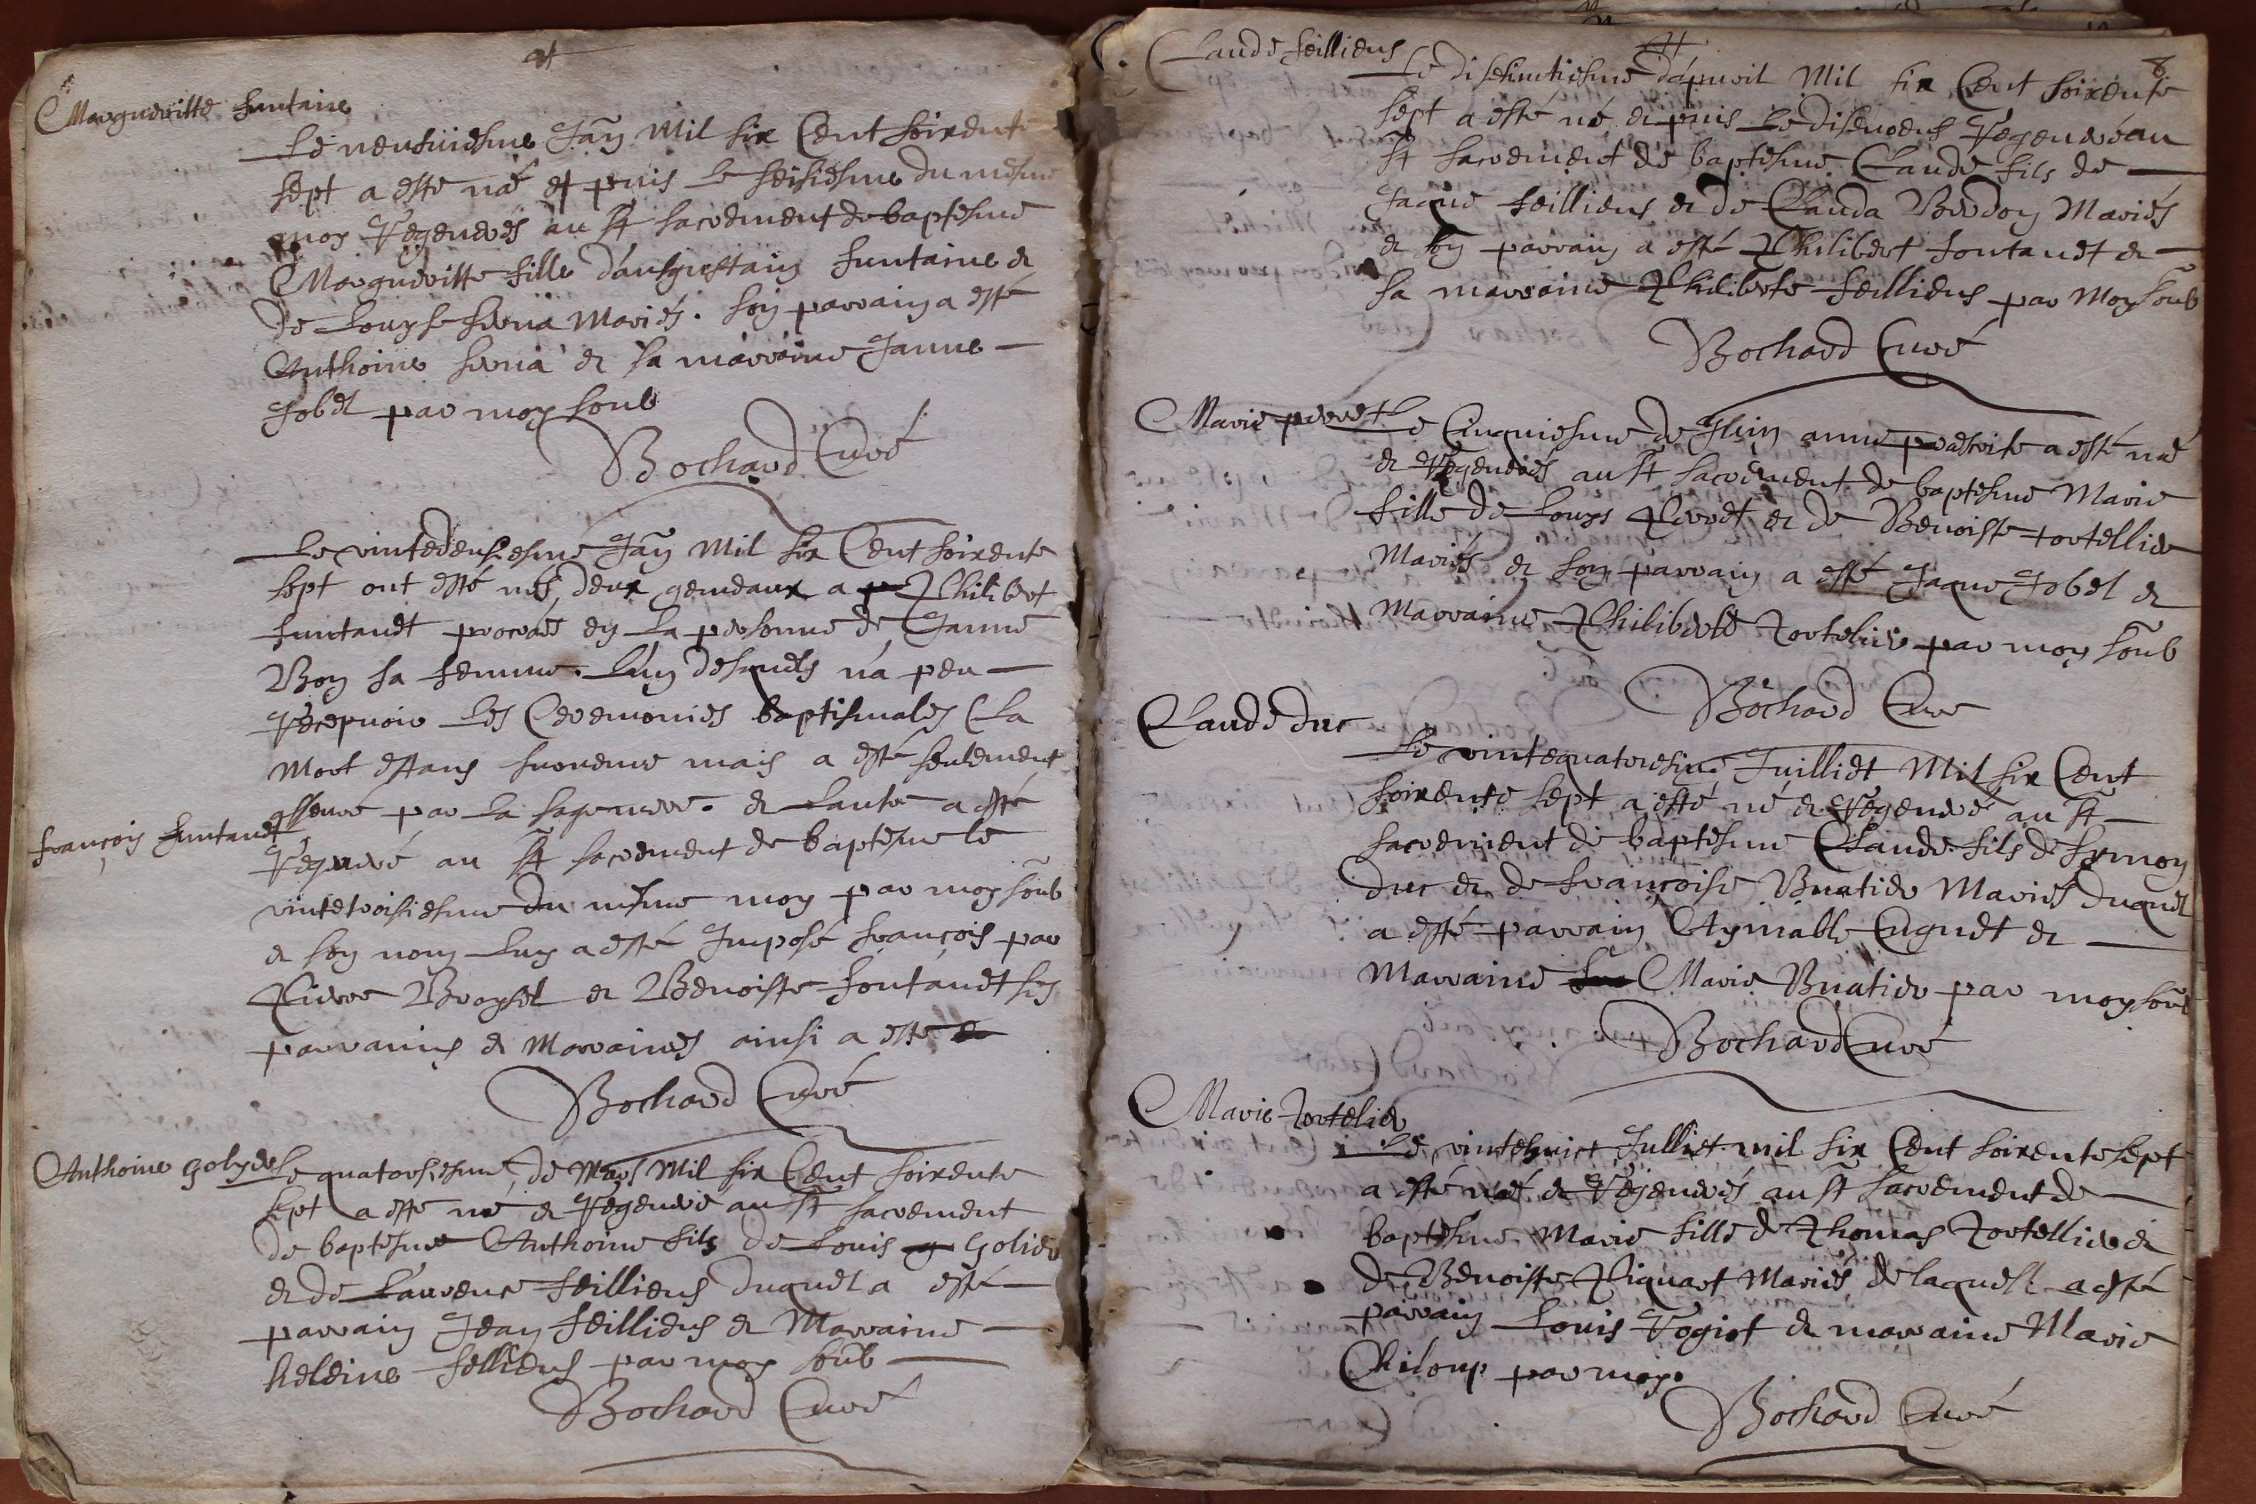 Margueritte funtaine
Le neufuiesme Jan Mil six Cent soixente
sept a esté naé et puis le seisiesme du mesme
moy Regenerés au st sacrement de baptesme
Margueritte fille d'ausgustain funtaine et
de Louyse serua Mariés. son parrain a esté
Anthoine serua et sa marraine Janne
Jobet par moy soub
Bochard Curé
Le vintedeusiesme Jan Mil six Cent soixente
sept ont esté nés deux gemeaux a Philibert
funtanet procréé en la personne de Janne
Bon sa femme. L'un desquels n'a peu
Recepuoir Les Ceremonies baptismales La
Mort estans suruenue mais a esté seulement
par la sage. et Lautre a esté
françois funtanet
Regeneré au st sacrement de baptesme le
vintetroisiesme du mesme moy par moy soub
et son nom Luy a esté Imposé françois par
Pierre Broyset et Benoiste fontanet ses
parrains et Marraines ainsi a esté
Bochard Curé
Anthoine golyer
Le quatorsiesme de Mars Mil six Cent soixente
sept a esté né et Regeneré au st sacrement
de baptesme Anthoine fils de Louis Golier
et de Laurence feilliens duquel a esté
parrain Jean feilliens et Marraine
heleine felliens par moy soub
Bochard Curé
8
Claude feilliens
Le disetinctiesme d'apuril Mil six Cent soixente
sept a esté né et puis Le Regeneré au
st sacrement de baptesme Claude fils de
Jaque feilliens et de Clauda Berdon Mariés
et son parrain a esté Philibert fontanet et
sa marraine Philiberte feilliens par Moy soub
Bochard Curé
Marie perret
Le Cinquiesme de Jluin anne predcrite a esté naé
et Regenerés au st sacrement de baptesme Marie
fille de Louys Perret et de Benoiste tortellier
Mariés et son parrain a esté Jaque Jobet et
Marraine Philiberte Tortelier par moy soub
Bochard Curé
Claude duc
Le vintequatoresime Juilliet Mil six Cent
soixente sept a esté né et Regeneré au st
sacrement de baptesme Claude fils de symon
duc et de françoise Buatier Mariés duquel
a esté parrain Aymable Cuguet et
Marraine Marie Buatier par moy soub
Bochard Curé
Marie Tortelier
Le vintehuict Julliet mil six Cent soixente sept
a esté naé et Regenerés au st sacrement de
baptesme Marie fille de Thomas Tortellier et
de Benoiste Piquart Mariés de laquelle a esté
parrain Louis Rogiet et marraine Marie
Chiloup par moy.
Bochard Curé